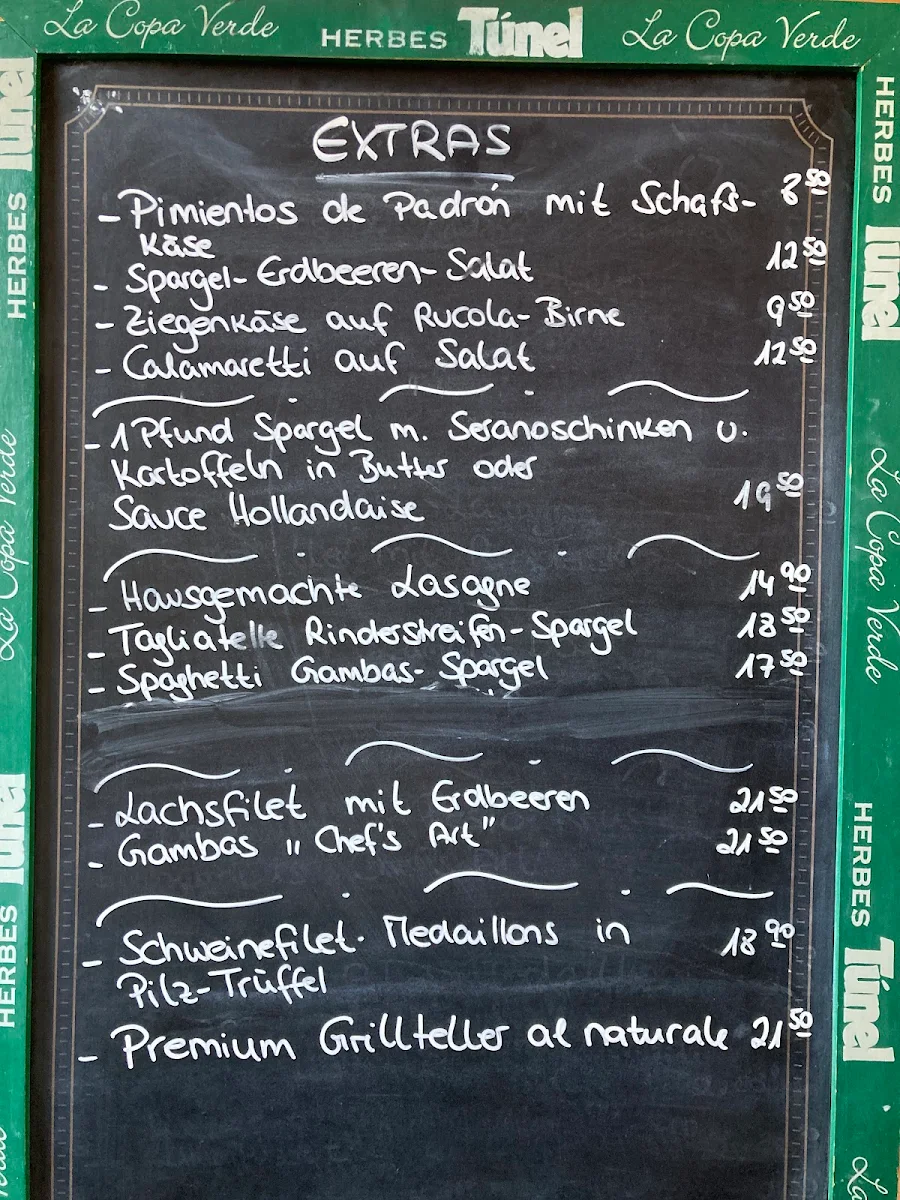 La Copa Verde HERBES Túnel La Copa Verde
EXTRAS
- Pimientos de Padrón mit Schafs- 8 50
Käse
- Spargel-Erdbeeren-Salat 12 50
- Ziegenkäse auf Rucola-Birne 9 50
- Calamaretti auf Salat 12 50
- 1 Pfund Spargel m. Seranoschinken u.
Kartoffeln in Butter oder
Sauce Hollandaise 19 50
- Hausgemachte Lasagne 14 90
- Tagliatelle Rinderstreifen-Spargel 18 50
- Spaghetti Gambas-Spargel 17 50
- Lachsfilet mit Erdbeeren 21 50
- Gambas „Chef's Art" 21 50
- Schweinefilet-Medaillons in 18 90
Pilz-Trüffel
- Premium Grillteller al naturale 21 50
Túnel
HERBES
La Copa Verde
Túnel
HERBES
HERBES
Túnel
La Copa Verde
HERBES
Túnel